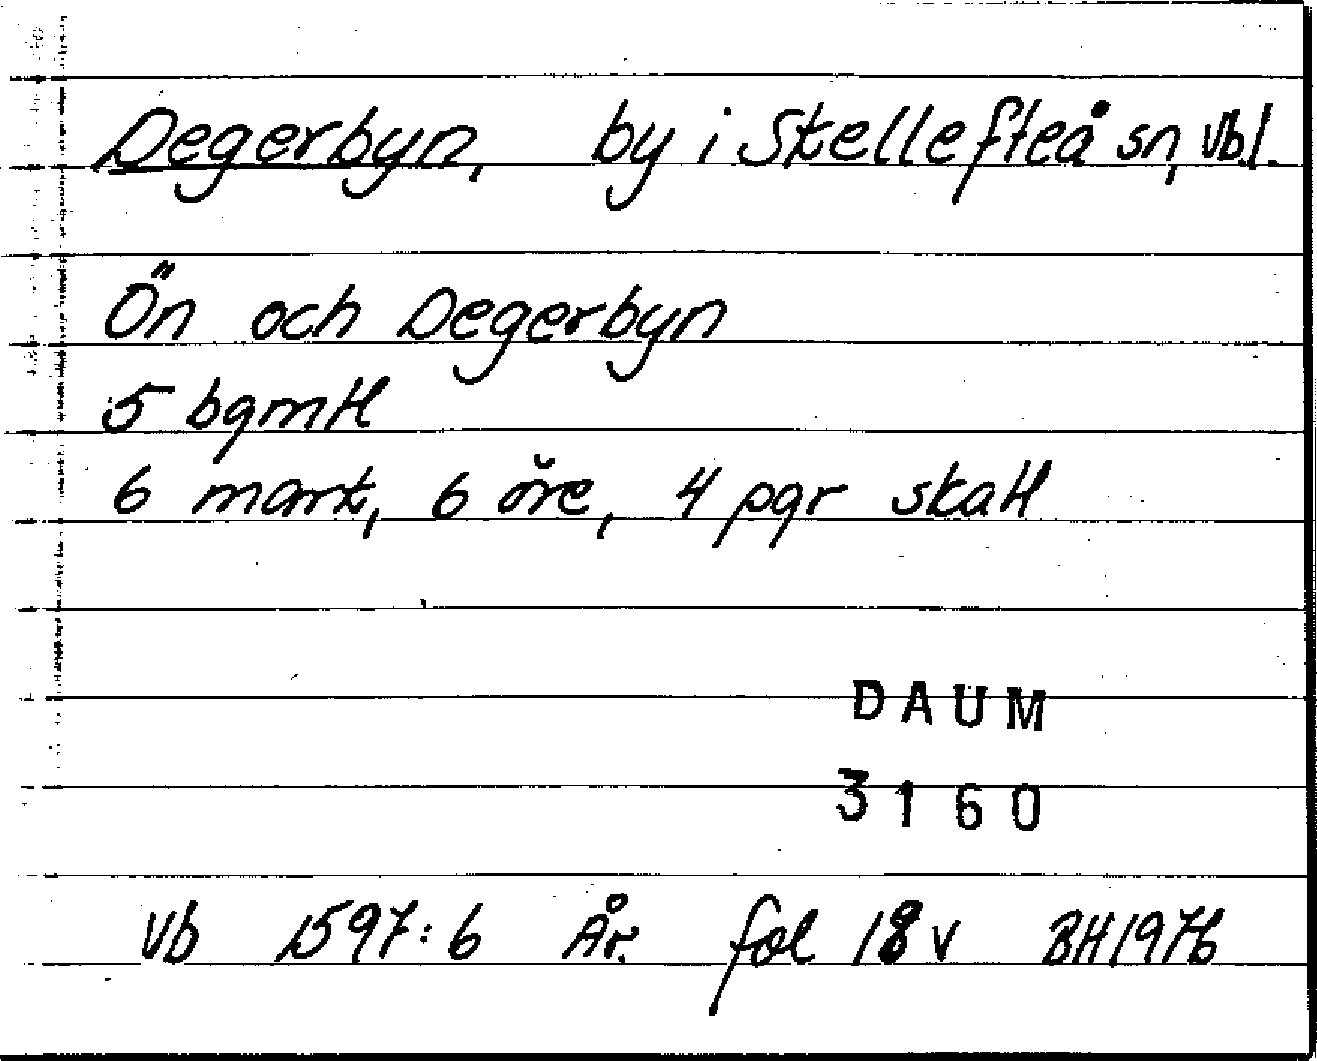 Degerbyn, by i Skellefteå sn, Vb.l.
Ön och Degerbyn
5 bgmtl
6 mark, 6 öre, 4 pgr skatt
DAUM
3160
Vb 1597:6 År. fol 18 v BH 1976